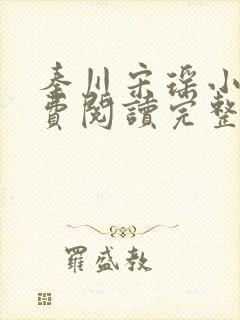 秦川宋瑤小
費閱讀完整
羅盛教